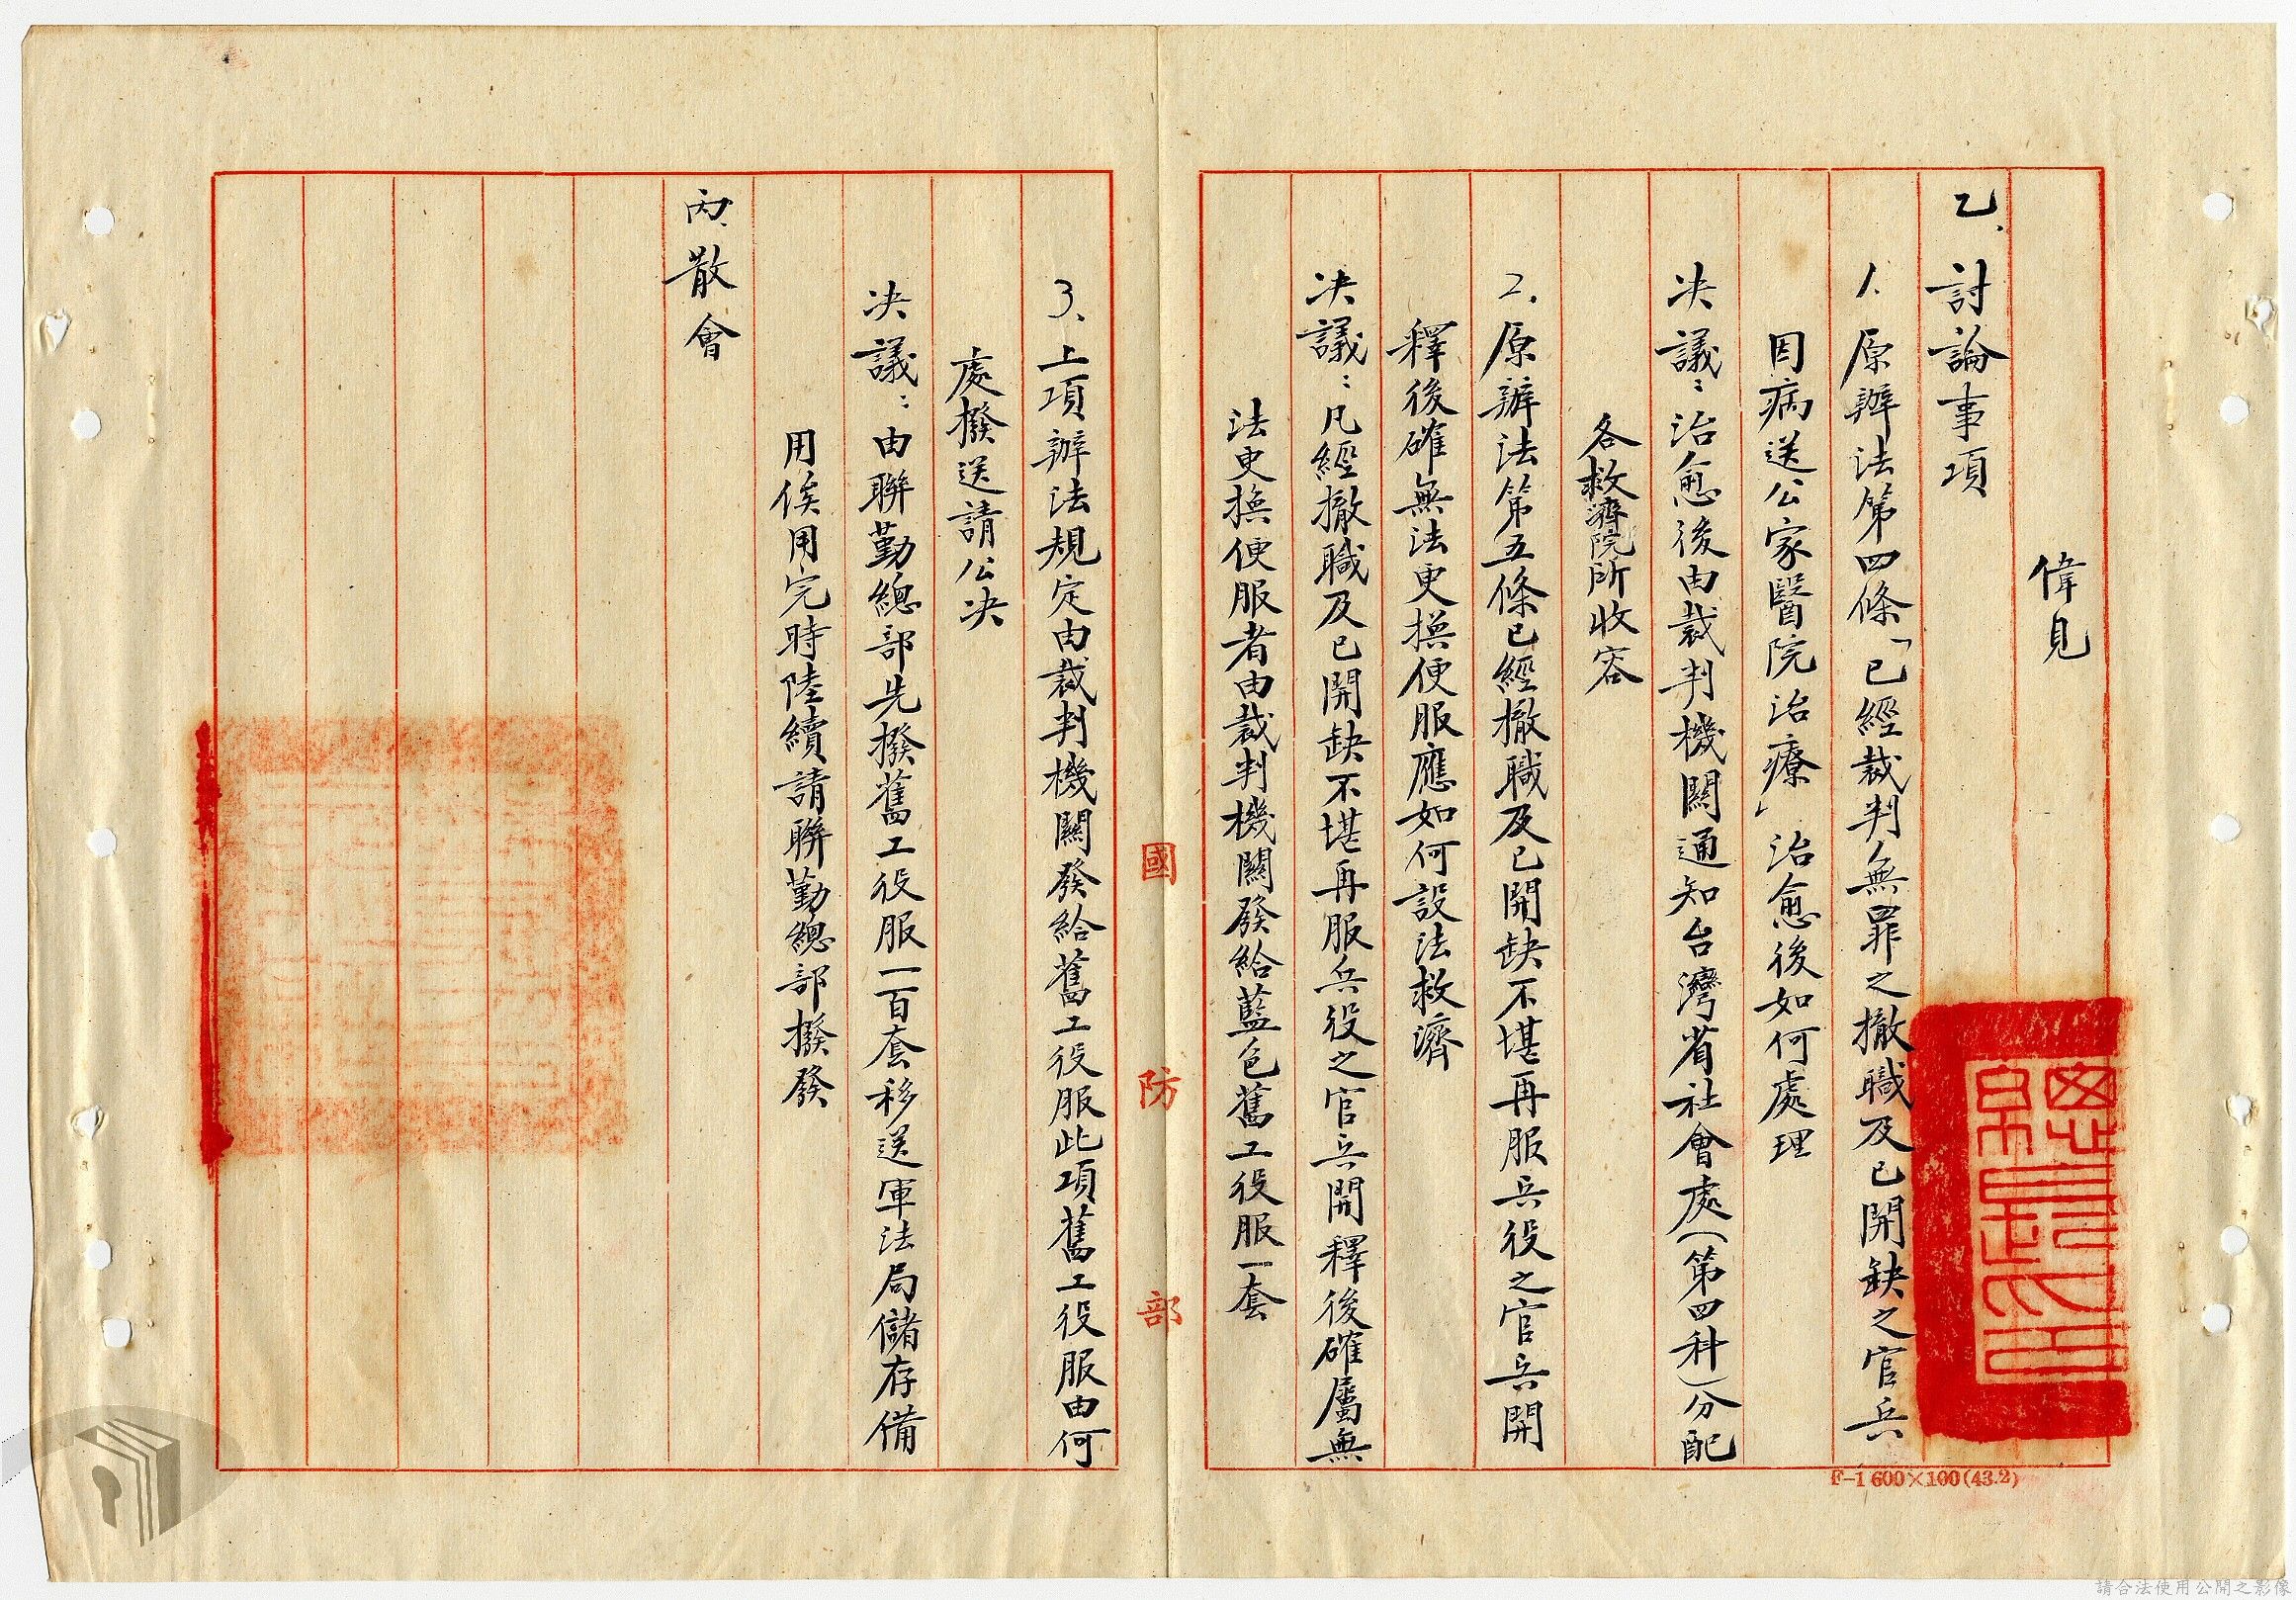 偉見
乙、討論事項
1、原辦法第四條「已經裁判無罪之撤職及已開缺之官兵
因病送公家醫院治療」治愈後如何處理
决議：治愈後由裁判機關通知台灣省社會處(第四科)分配
各救濟院所收容
2、原辦法第五條已經撤職及已開缺不堪再服兵役之官兵開
釋後確無法更換便服應如何設法救濟
决議：凡經撤職及已開缺不堪再服兵役之官兵開釋後確屬無
法更換便服者由裁判機關發給藍色舊工役服一套
國防部
3、上項辦法規定由裁判機關發給舊工役服此項舊工役服由何
處撥送請公决
决議：由聯勤總部先撥舊工役服一百套移送軍法局儲存備
用俟用完時陸續請聯勤總部撥發
丙、散會
F-1 600×100(43.2)
請合法使用公開之影像